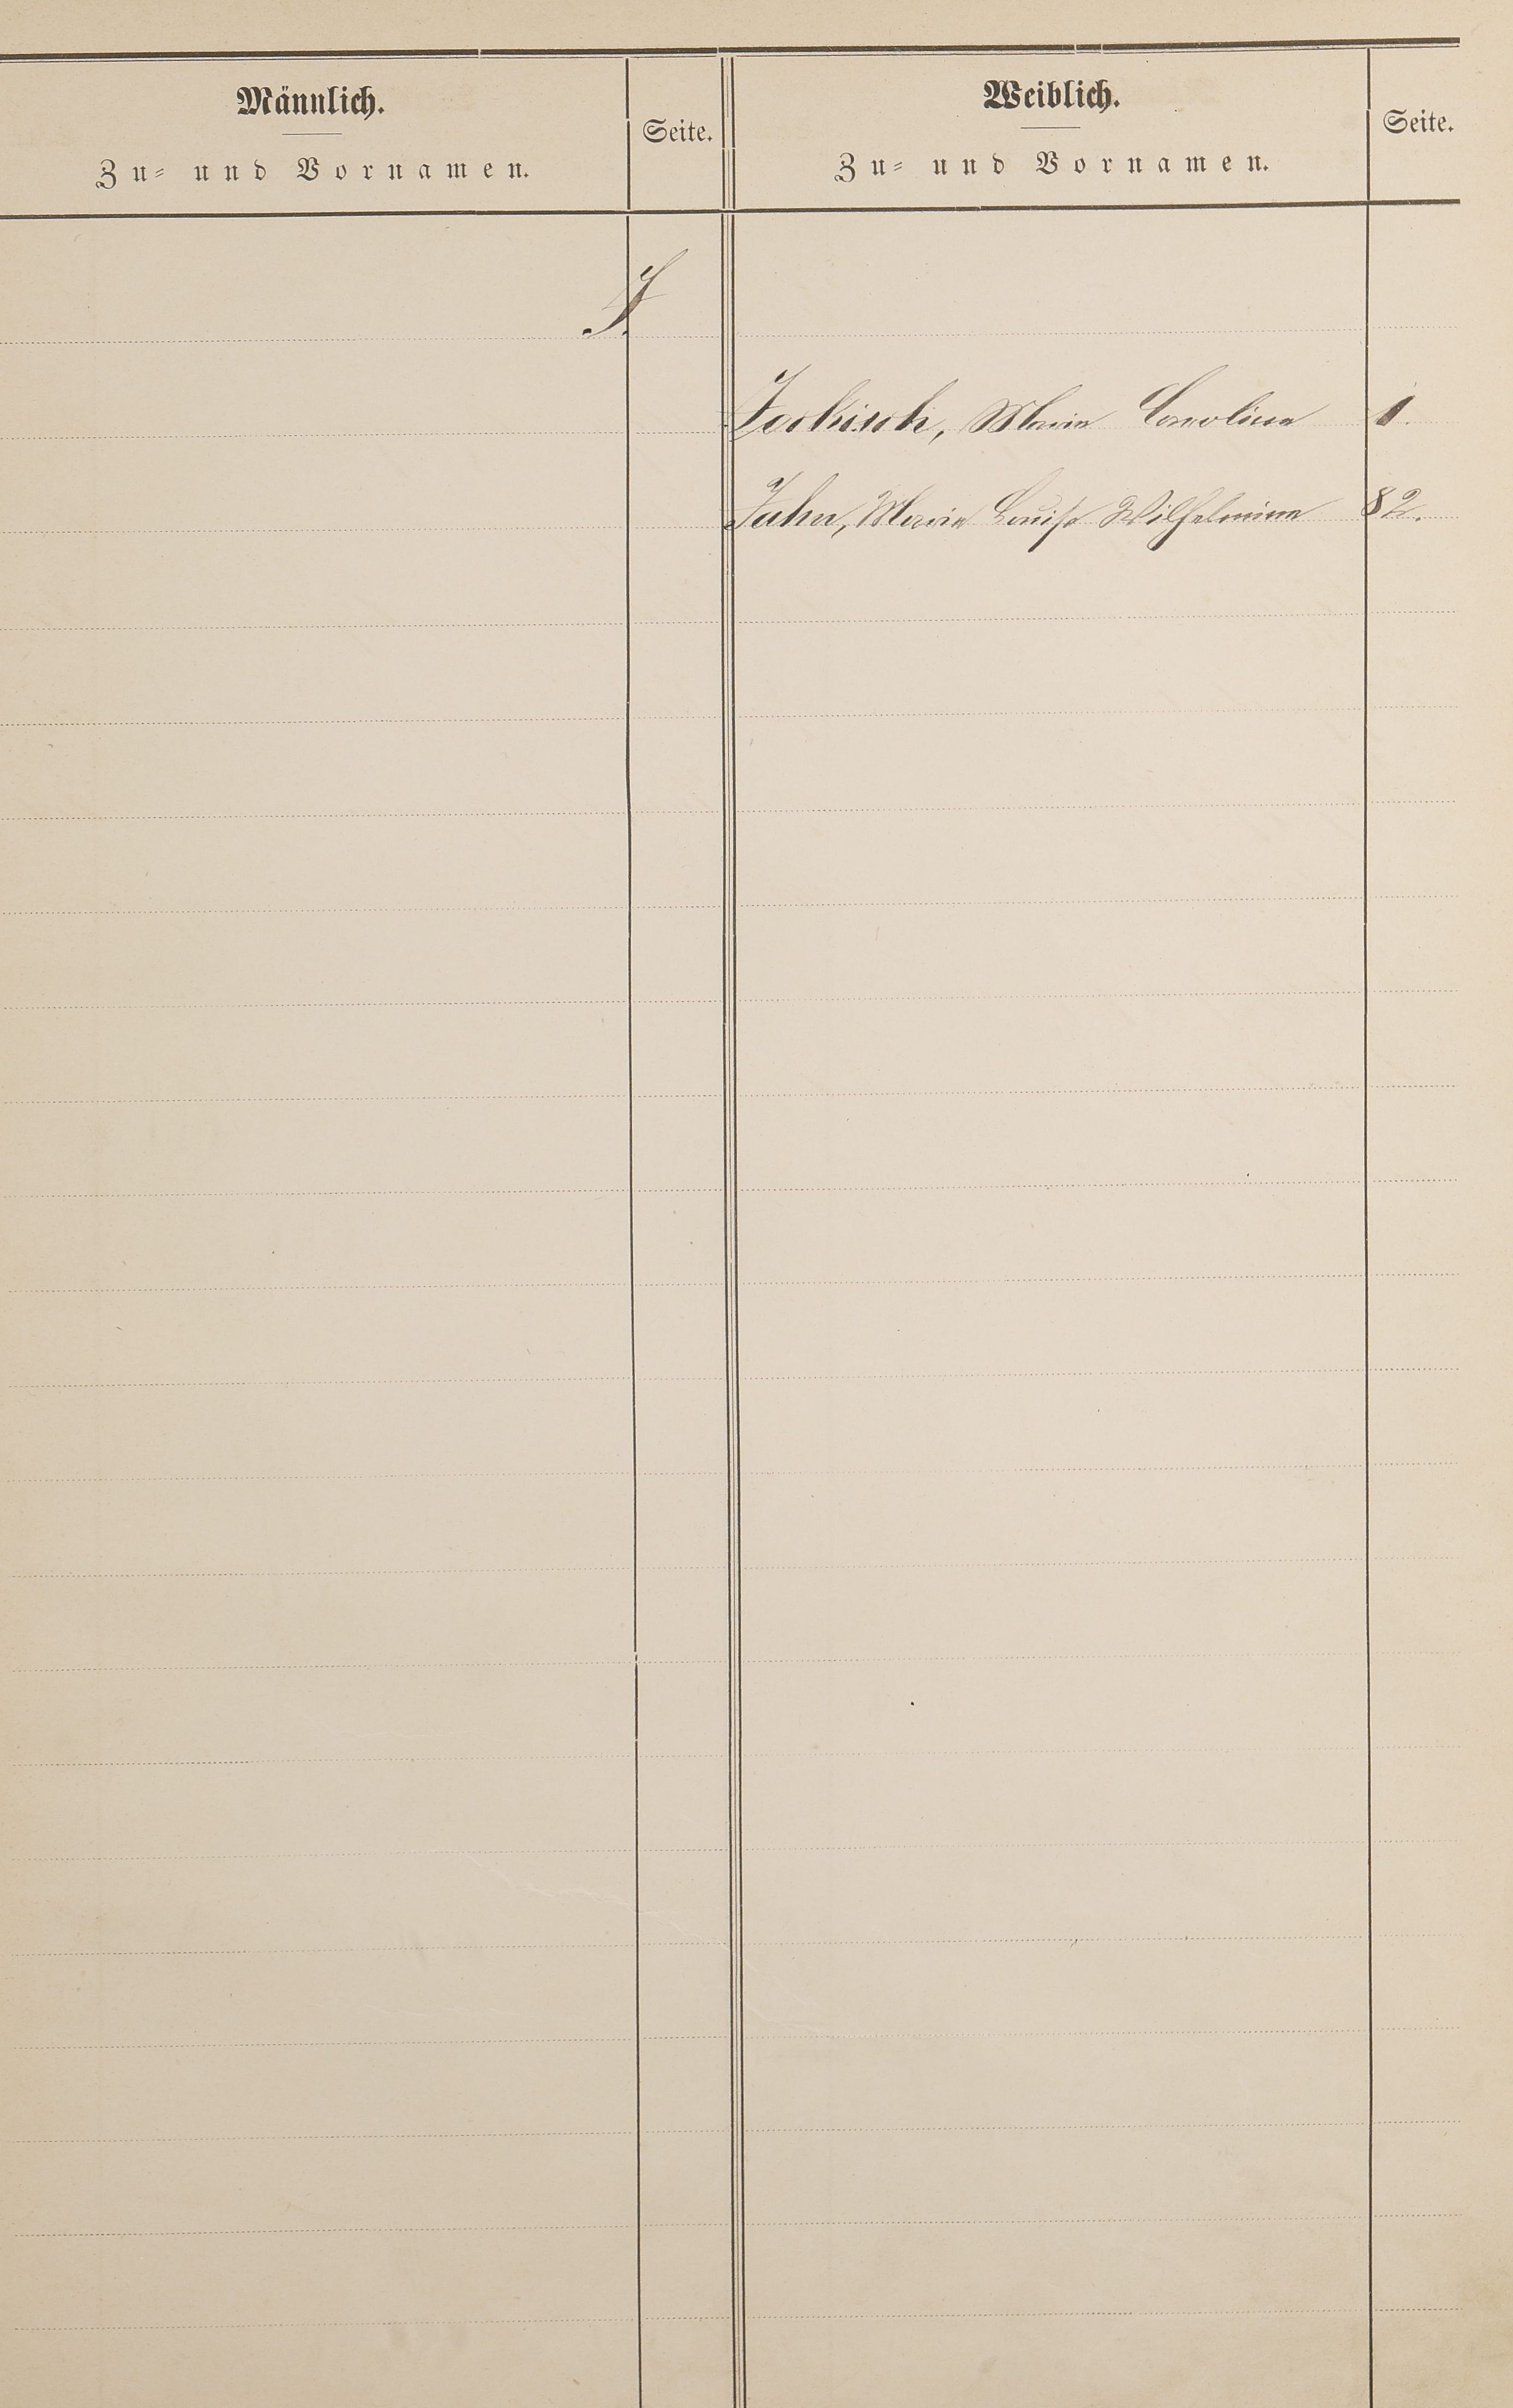 Männlich.
Zu- und Vornamen.
Seite.
Weiblich.
Zu- und Vornamen.
Seite.
J.
Jockisch, Marie Caroline 1.
Jahn, Marie Louise Wilhelmine 82.